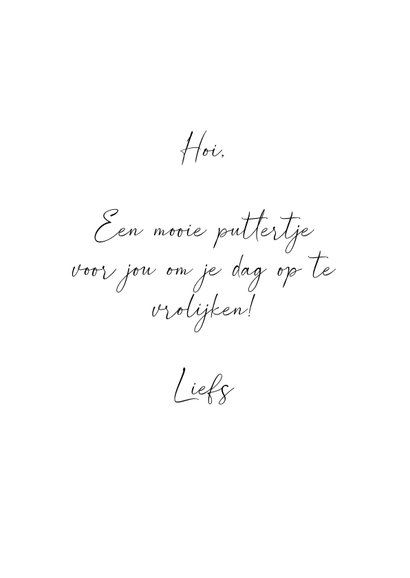 Hoi,
Een mooie puttertje
voor jou om je dag op te
vrolijken!
Liefs